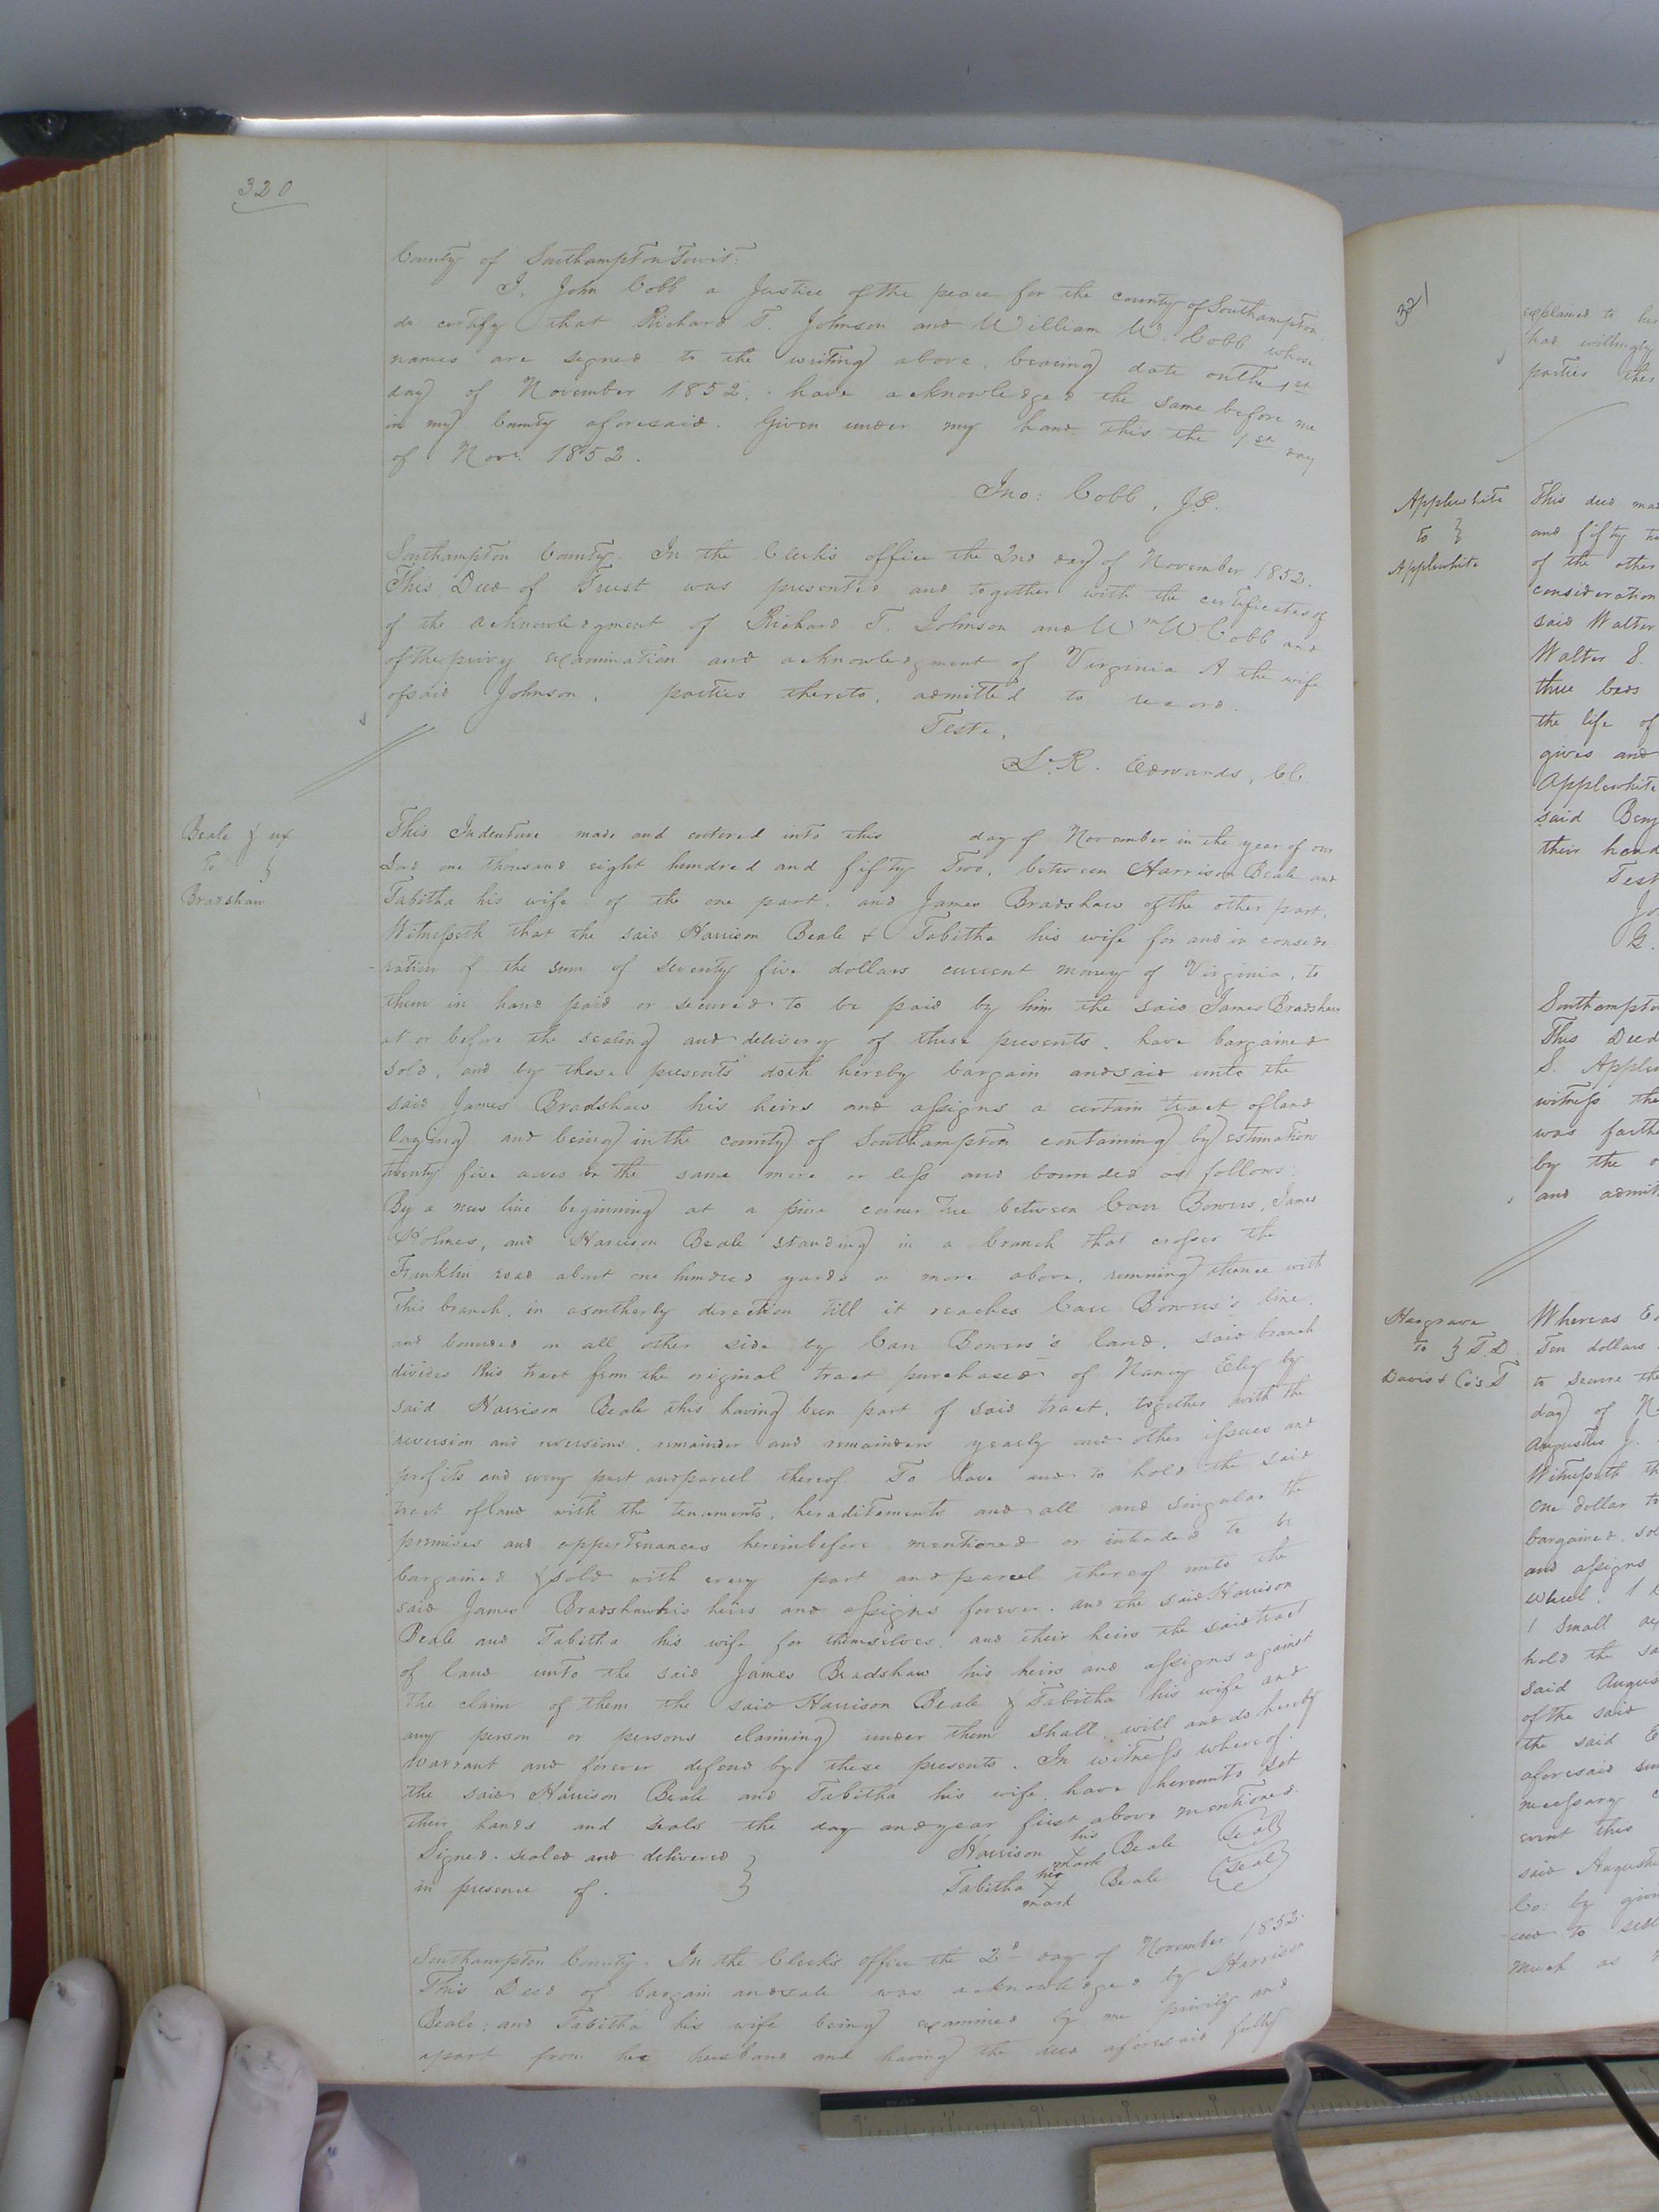 320
County of Southampton Towit:
I, John Cobb a Justice of the peace for the county of Southampton
do certify that Richard T. Johnson and William W. Cobb whose
names are signed to the writing above, bearing date on the 1st
day of November 1852, have acknowledged the same before me
in my County aforesaid. Given under my hand this the 1st day
of Novr. 1852.
Jno: Cobb, J.P.
Southampton County. In the Clerk's office the 2nd day of November 1852.
This Deed of Trust was presented and together with the certificates of
of the acknowledgment of Richard T. Johnson and Wm W Cobb and
of the privy examination and acknowledgment of Virginia A the wife
of said Johnson, parties thereto, admitted to record.
Teste,
L. R. Edwards, C.C.
Beale & ux
To }
Bradshaw
This Indenture made and entered into this day of November in the year of our
Lord one thousand eight hundred and fifty Two, between Harrison Beale and
Tabitha his wife of the one part, and James Bradshaw of the other part,
Witnesseth that the said Harrison Beale & Tabitha his wife for and in conside
-ration of the sum of seventy five dollars current money of Virginia, to
them in hand paid or secured to be paid by him the said James Bradshaw
at or before the sealing and delivery of these presents, have bargained
sold, and by these presents doth hereby bargain and said unto the
said James Bradshaw his heirs and assigns a certain tract of land
laying and being in the county of Southampton containing by estimation
twenty five acres be the same more or less and bounded as follows:
By a new line beginning at a pine corner tree between Carr Bowers, James
Holmes, and Harrison Beale standing in a branch that crosses the
Franklin road about one hundred yards or more above, running thence with
This branch, in a southerly direction till it reaches Carr Bowers's line,
and bounded on all other side by Carr Bowers's land, said branch
divides this tract from the original tract purchased of Nancy Eley by
said Harrison Beale this having been part of said tract, together with the
reversion and reversions, remainder and remainders yearly and other issues and
profits and every part and parcel thereof To have and to hold the said
tract of land with the tenaments, heraditaments and all and singular the
premises and appertenances hereinbefore mentioned or intended to be
bargained & sold with every part and parcel thereof unto the
said James Bradshaw his heirs and assigns forever. and the said Harrison
Beale and Tabitha his wife for themselves, and their heirs the said tract
of land unto the said James Bradshaw his heirs and assigns against
the claim of them the said Harrison Beale & Tabitha his wife and
any person or persons claiming under them shall will and do hereby
warrant and forever defend by these presents. In witness whereof.
the said Harrison Beale and Tabitha his wife, have hereunto set
their hands and seals the day and year first above mentioned.
Signed. sealed and delivered } Harrison his mark Beale (Seal)
in presence of. } Tabitha her X mark Beale (Seal)
Southampton County. In the Clerk's office the 2d day of November 1852.
This Deed of bargain and sale was acknowledged by Harrison
Beale; and Tabitha his wife being examined by me privily and
apart from her husband and having the deed aforesaid fully
321
explained to her
had willingly
parties ther
Applewhite
to }
Applewhite
This deed mad
and fifty tw
of the other
consideration
said Walter
Walter S.
three beds
the life of
gives and
Applewhite
said Benj
their hand
Test
Jo
G.
Southampto
This Deed
S. Applew
witness the
was furthe
by the o
and admit
Hargrave
to } T.D.
Davis & Co's T
Whereas E
Ten dollars
to secure the
day of N
Augustus J.
Witnesseth th
one dollar to
bargained, sol
and assigns
wheel. 1
1 Small
hold the sa
said Augus
of the said
the said E
aforesaid su
necessary
event this
said Augustu
Co: by givin
to sell
much as